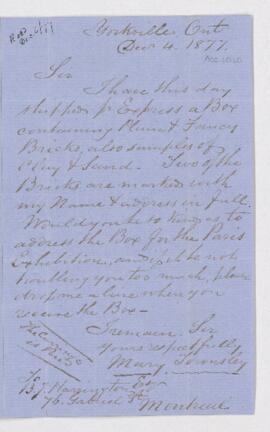 Yorkville, Ont
Dec 4. 1877.
Sir
I have this day
shipped pr Express a Box
containing Plain & Fancy
Bricks, also samples of
Clay & Sand. Two of the
Bricks are marked with
my Name & address in full.
Would you be so kind as to
address the Box for the Paris
Exhibition, and if not
troubling you too much, please
drop me a line when you
receive the Box —
I remain Sir
Yours respectfully
Mary Townsley
The Carriage
is Paid
To
B.J. Harrington Esq
76. Gabriel St
Montreal